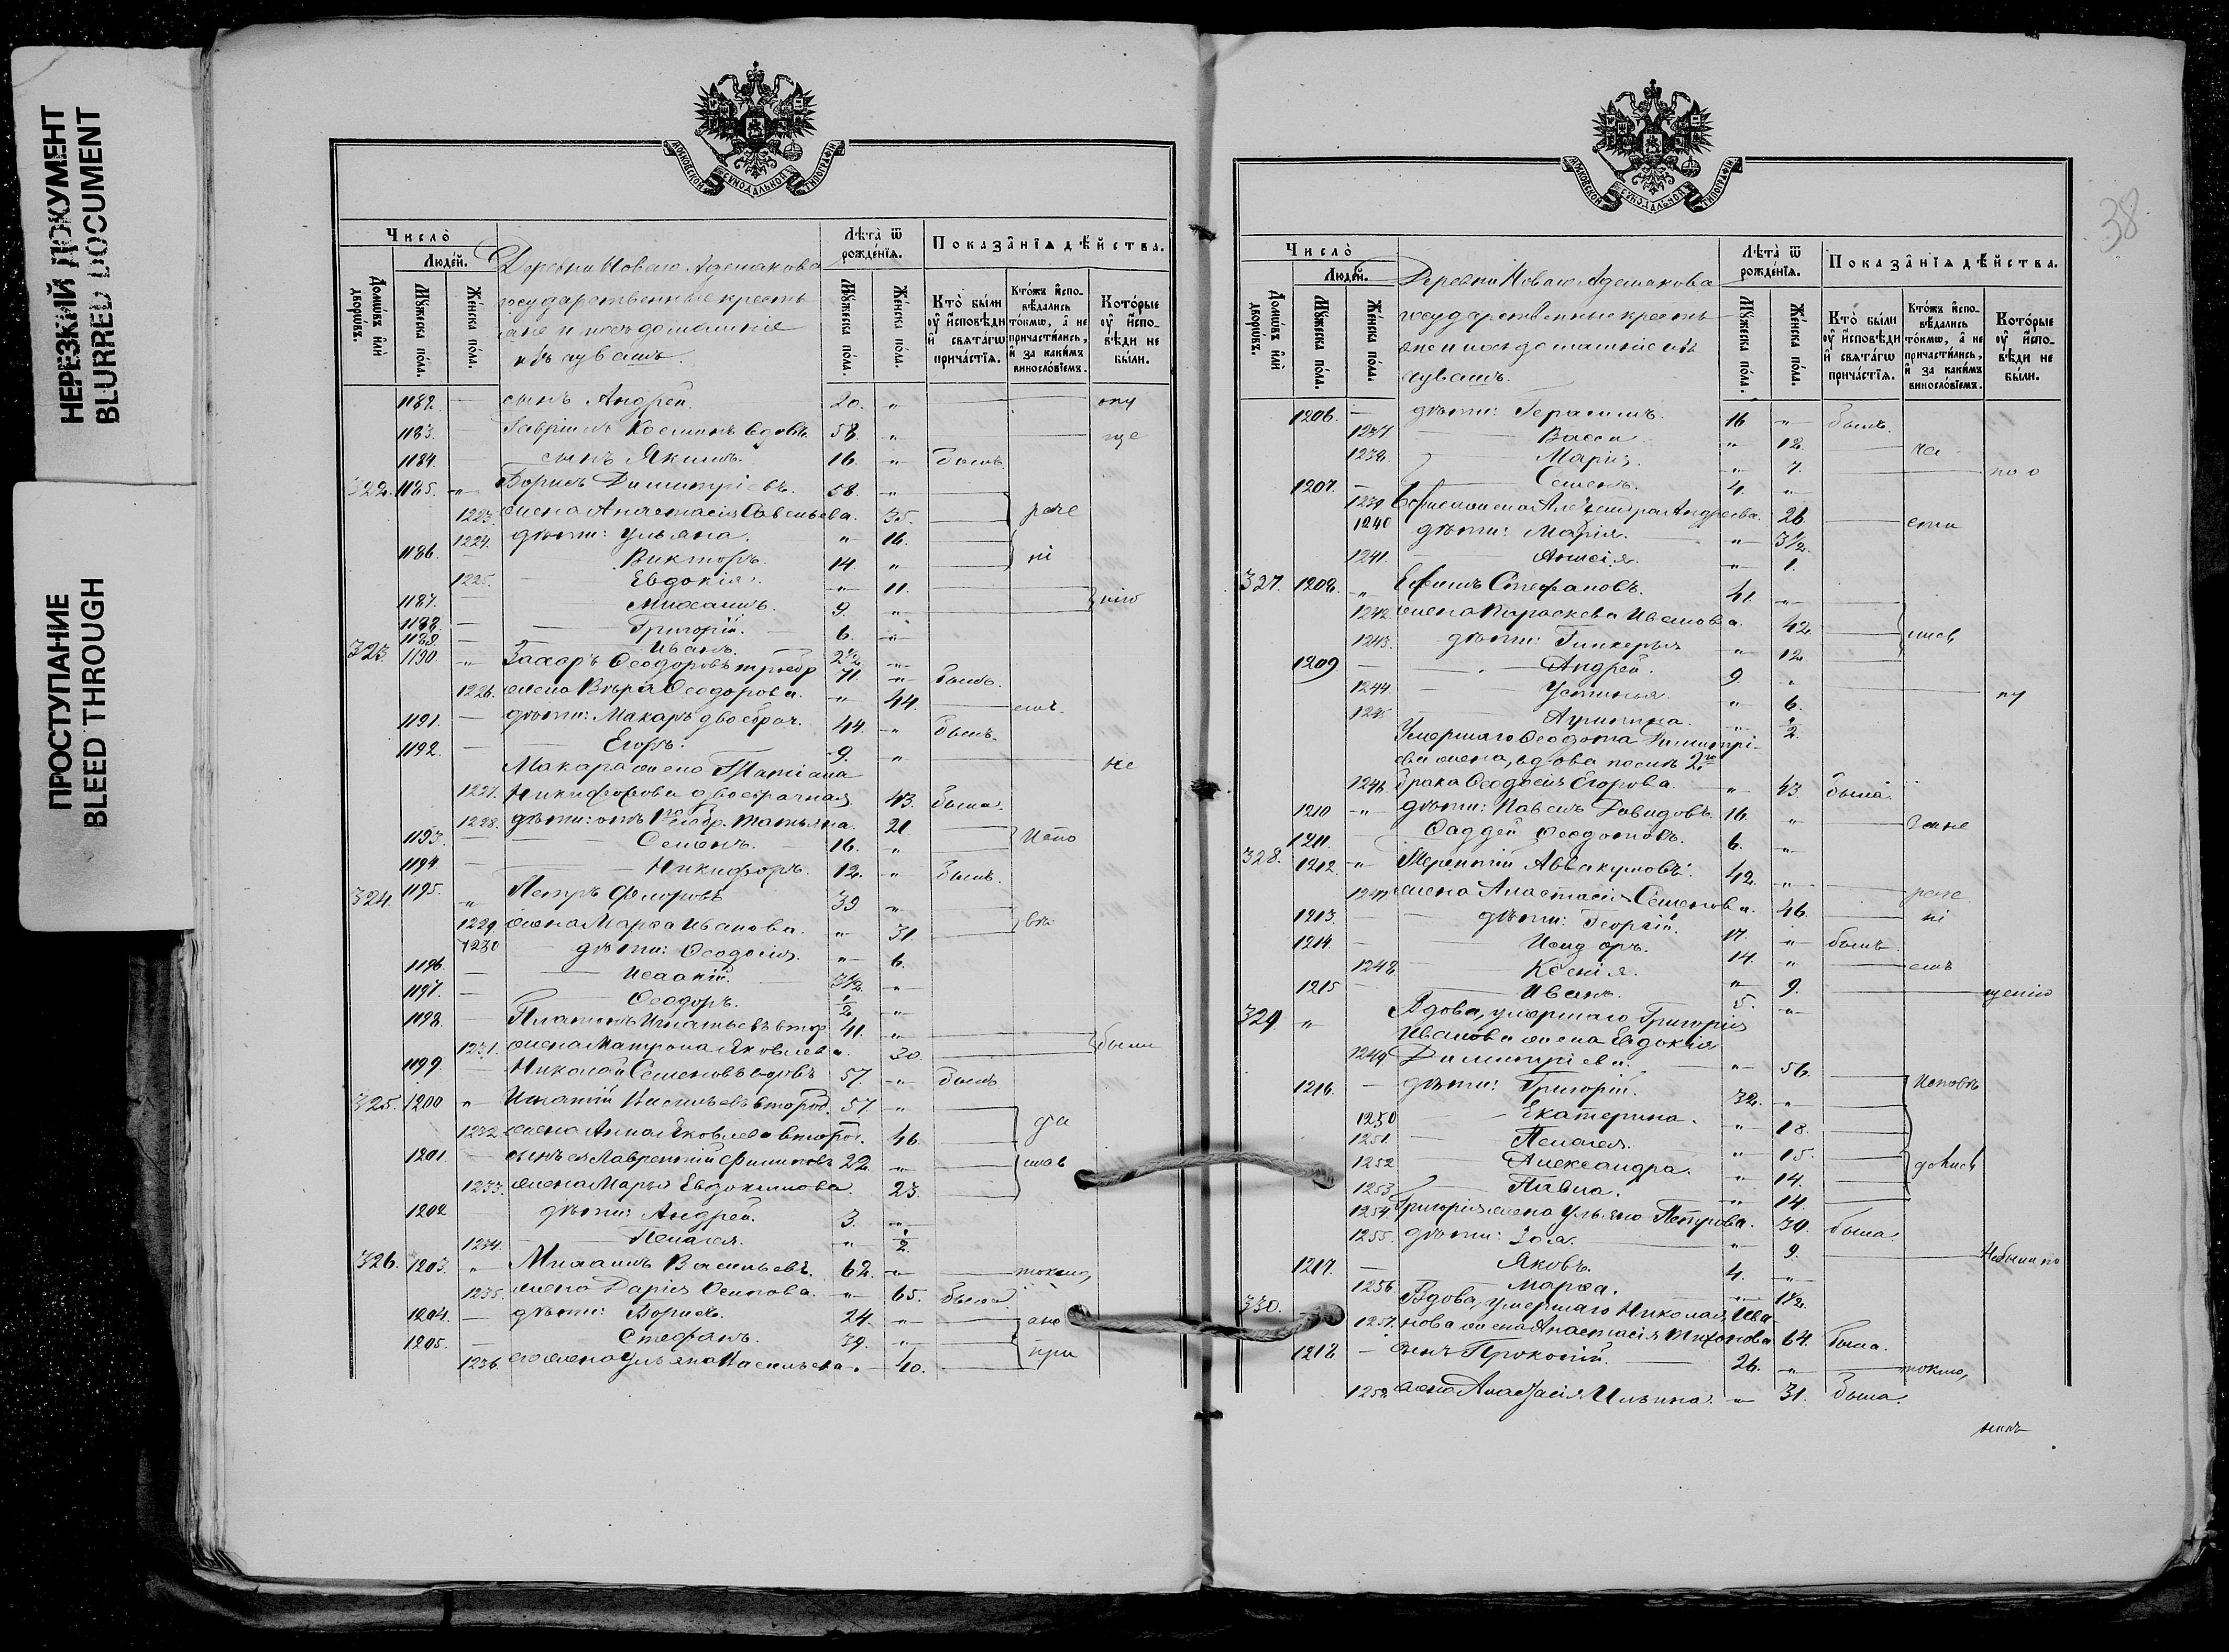 НЕРЕЗКИЙ ДОКУМЕНТ
BLURRED DOCUMENT
ПРОСТУПАНИЕ
BLEED THROUGH
МОСКОВСКОЙ СѴНОДАЛЬНОЙ ТИПОГРАФІИ
Число̀
Людє́й.
Домѡ́въ и҆лѝ дворѡ́въ.
Мꙋ́жеска по́ла.
Же́нска по́ла.
Деревни Новаго Адешакова
государственные кресть
яне и ихъ домашніе
изъ чувашъ.
Лѣта̀ ѿ рожде́нїѧ.
Мꙋ́жеска по́ла.
Же́нска по́ла.
Показа̑нїѧ дѣ́йства.
Кто̀ бы́ли ᲂу҆ и҆сповѣди и҆ свѧта́гѡ прича́стїѧ.
Кто́жъ и҆спо- вѣдались то́кмѡ, а҆ не причасти́лись, и҆ за каки́мъ винослові́емъ.
Кото́рые ᲂу҆ и҆спо- вѣди не бы́ли.
1182. — сынъ Андрей. 20. „ опу
1183. — Гавріилъ Косминъ вдовъ 58. „ ще
1184. — сынъ Якимъ. 16. „ былъ.
322. 1185. „ Борисъ Димитріевъ. 58. „
1223. жена Анастасія Савельева. 35. рече
1224. дѣти: Ульяна. „ 16.
1186. Викторъ. 14. „ ні
1225. Евдокія. „ 11.
1187. Михаилъ. 9. „ нію
1188. — Григорій. 6. „
1189. — Иванъ. 2½ „
323. 1190. „ Захаръ Ѳеодоровъ троебр 71. „ былъ.
1226. жена Вѣра Ѳеодорова. „ 44. емъ
1191. — дѣти: Макаръ двоебрач. 44. „ былъ.
1192. — Егоръ. 9. „ не
Макара жена Татіана
1227. Никифорова двоебрачная 43. была.
1228. дѣти: отъ 1го бр. Татьяна. 21.
1193. — Семенъ. 16. „ Испо
1194. — Никифоръ. 12. „ былъ.
324. 1195. „ Петръ Флоровъ 39. „
1229. жена Марѳа Иванова. „ 31. вѣ
1230 дѣти: Ѳеодосія. „ 6.
1196. — Исаакій. 3½. „
1197. — Ѳеодоръ. ½ „
1198. — Платонъ Игнатьевъ втор 41. „
1231. жена Матрона Яковлева. 30. были
1199. — Николай Семеновъ вдовъ 57. „ былъ
325. 1200 „ Игнатій Васильевъ второб. 57. „
1232. жена Анна Яковлева второб. 46. да
1201. — сынъ ея Лаврентій Филиповъ 22. „ лись
1233. жена Марья Евдокимова. 23.
1202 дѣти: Андрей. 3. „
1234. — Пелагея. „ ½.
326. 1203. „ Михаилъ Васильевъ. 62. „ токмо,
1235. жена Дарія Осипова. „ 65. была.
1204. — дѣти: Борисъ. 24. „ ане
1205. — Стефанъ. 39. „
1236. его жена Ульяна Васильева. 40. при
38
МОСКОВСКОЙ СѴНОДАЛЬНОЙ ТИПОГРАФІИ
Число̀
Людє́й.
Домѡ́въ и҆лѝ дворѡ́въ.
Мꙋ́жеска по́ла.
Же́нска по́ла.
Деревни Новаго Адешакова
государственные кресть
яне и ихъ домашніе изъ
чувашъ.
Лѣта̀ ѿ рожде́нїѧ.
Мꙋ́жеска по́ла.
Же́нска по́ла.
Показа̑нїѧ дѣ́йства.
Кто̀ бы́ли ᲂу҆ и҆сповѣди и҆ свѧта́гѡ прича́стїѧ.
Кто́жъ и҆спо- вѣдались то́кмѡ, а҆ не причасти́лись, и҆ за каки́мъ винослові́емъ.
Кото́рые ᲂу҆ и҆спо- вѣди не бы́ли.
1206. — дѣти: Герасимъ. 16 „ былъ.
1237 Васса. „ 12. ча
1238. Марія. „ 7. по о
1207. — Семенъ. 4. „
1239 Бориса жена Александра Андреева. 26. сти
1240 дѣти: Марія. „ 3½.
1241. Анисія. „ 1.
327. 1208. „ Ефимъ Стефановъ. 41. „
1242. жена Параскева Иванова. 42. лись
1243. дѣти: Гликерья „ 12.
1209 — Андрей. 9. „
1244. Устинья. „ 6. пу
1245 Агрипина. „ ½.
Умершаго Ѳеодота Димитрі-
ева жена, вдова послѣ 2го
1246. брака Ѳеодосія Егорова. „ 43. была.
1210 „ дѣти: Павелъ Давидовъ. 16. „
1211. Ѳаддей Ѳеодотовъ. 6. „
328. 1212. „ Терентій Аввакумовъ. 42. „
1247 жена Анастасія Семенова. 46. рече
1213. — дѣти: Георгій. 17. „ былъ ні
1214 — Исидоръ. 14. „ емъ
1248. Ксенія. „ 9.
1215 — Иванъ. 5. „ щенію
329 „ Вдова, умершаго Григорія
Иванова жена Евдокія
1249 Димитріева. „ 56.
1216. — дѣти: Григорій. 32. „ Исповѣ
1250 — Екатерина. „ 18.
1251. Пелагея. „ 15.
1252 Александра. „ 14. дались
1253 Павла. „ 14.
1254 Григорія жена Ульяна Петрова. 30. была.
1255. дѣти: Зоя. „ 9.
1217. — Яковъ. 4. „ Небыли по
1256 Марѳа. „ 1½.
330. Вдова, умершаго Николая Ива-
1257. нова жена Анастасія Тихонова 64. была.
1218 — сынъ Прокопій. 26. „ токмо,
1258 жена Анастасія Ильина. „ 31. была.